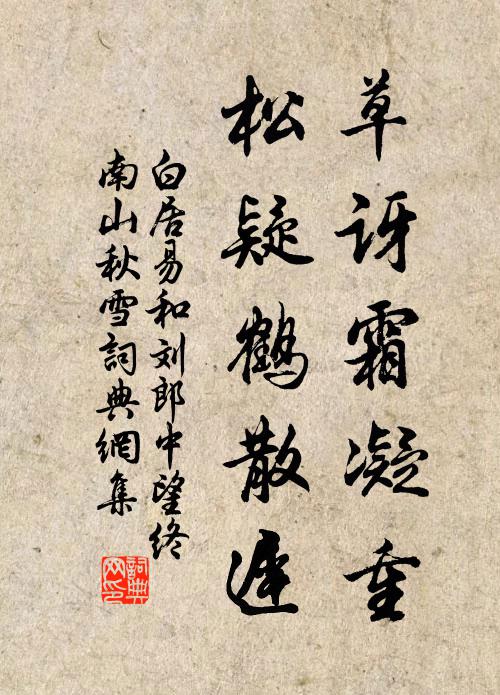 草讶霜凝重
松疑鹤散遅
白居易和刘郎中望终
南山秋雪詞典網集
詞典
网印